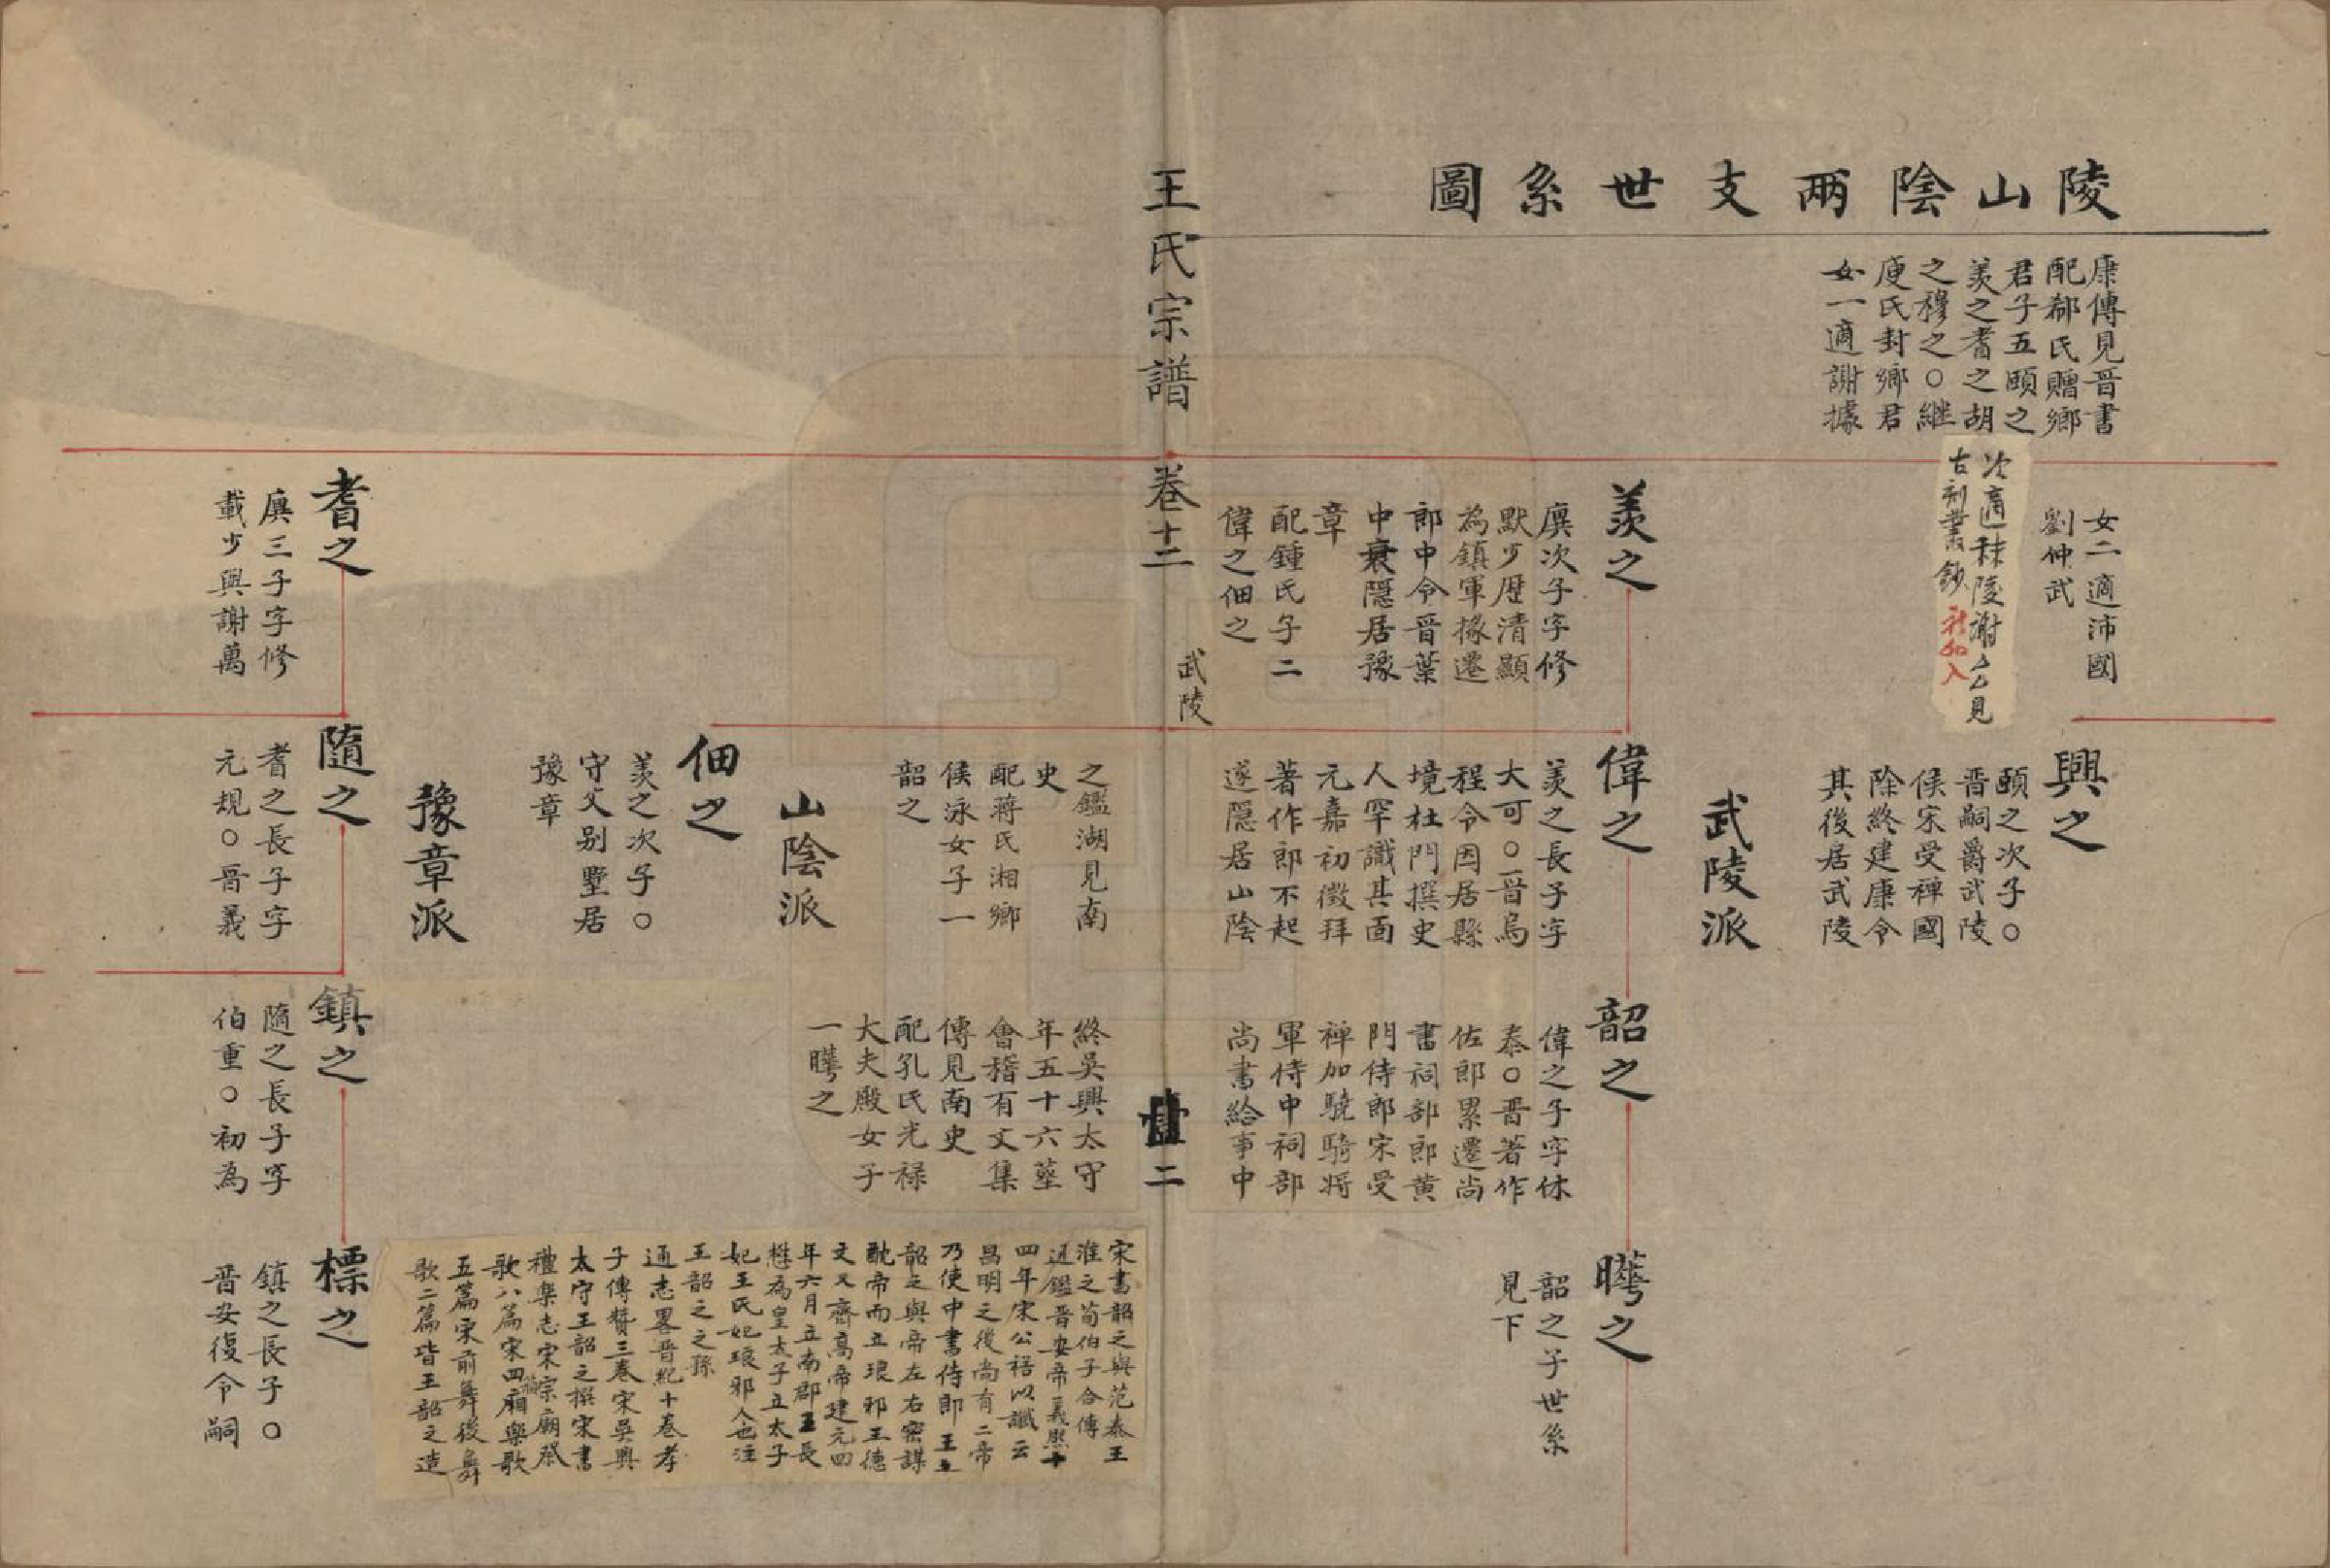 陵山陰兩支世系圖
康傳見晉書
配郗氏贈鄉
君子五頤之
羨之耆之胡
之穆之○繼
庾氏封鄉君
女一適謝據
女二適沛國
劉仲武
次適秣陵謝厶厶見
古刻叢鈔
補入
興之
頤之次子○
晋嗣爵武陵
侯宋受禪國
除終建康令
其後居武陵
武陵派
羨之
廙次子字修
默少歷清顯
為鎮軍掾遷
郎中令晋葉
中衰隱居豫
章
配鍾氏子二
偉之佃之
偉之
羨之長子字
大可○晋烏
程令因居縣
境杜門撰史
人罕識其面
元嘉初徵拜
著作郎不起
遂隱居山陰
韶之
偉之子字休
泰○晋著作
佐郎累遷尚
書祠部郎黄
門侍郎宋受
禅加驍騎將
軍侍中祠部
尚書給事中
曄之
韶之子世系
見下
王氏宗譜
卷十二
武陵
二
之鑑湖見南
史
配蔣氏湘鄉
侯泳女子一
韶之
山陰派
終吳興太守
年五十六葬
會稽有文集
傳見南史
配孔氏光禄
大夫殿女子
一曄之
宋書韶之與范泰王
淮之荀伯子合傳
通鑑晋安帝義熙十
四年宋公裕以讖云
昌明之後尚有二帝
乃使中書侍郎王
韶之與帝左右密謀
酖帝而立琅邪王德
文又齊高帝建元四
年六月立南郡王長
懋為皇太子立太子
妃王氏妃琅邪人也注
王韶之之孫
通志畧晋紀十卷孝
子傳贊三卷宋吳興
太守王韶之撰宋書
禮樂志宋宗廟祭
歌八篇宋四廂樂歌
五篇宋前舞後舞
歌二篇皆王韶之造
佃之
羨之次子○
守父别墅居
豫章
豫章派
耆之
廙三子字修
載少與謝萬
隨之
耆之長子字
元規○晋義
鎮之
隨之長子字
伯重○初為
標之
鎮之長子○
晋安復令嗣